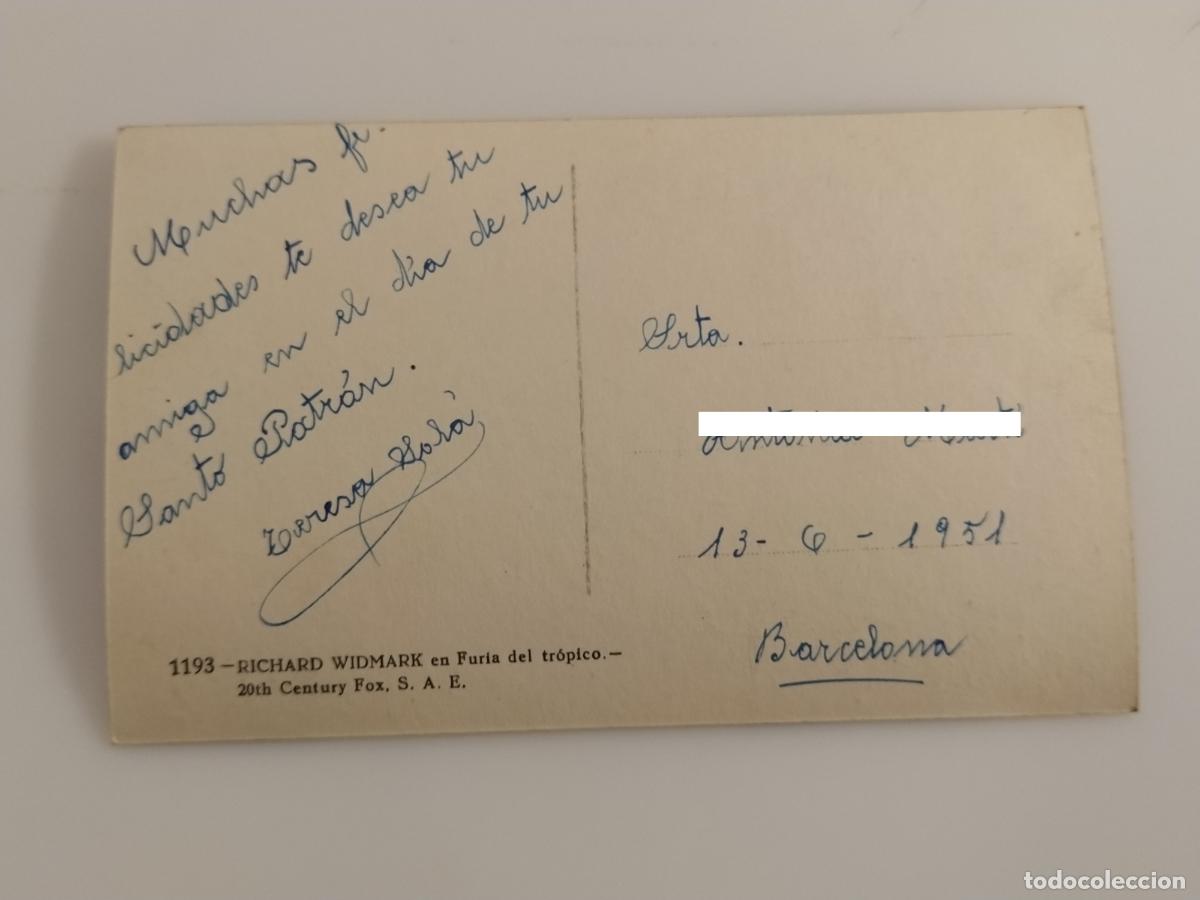 Muchas fe-
licidades te desea tu
amiga en el día de tu
Santo Patrón.
Teresa Solá
1193 — RICHARD WIDMARK en Furia del trópico.—
20th Century Fox, S. A. E.
Srta.
13 - 6 - 1951
Barcelona
todocoleccion